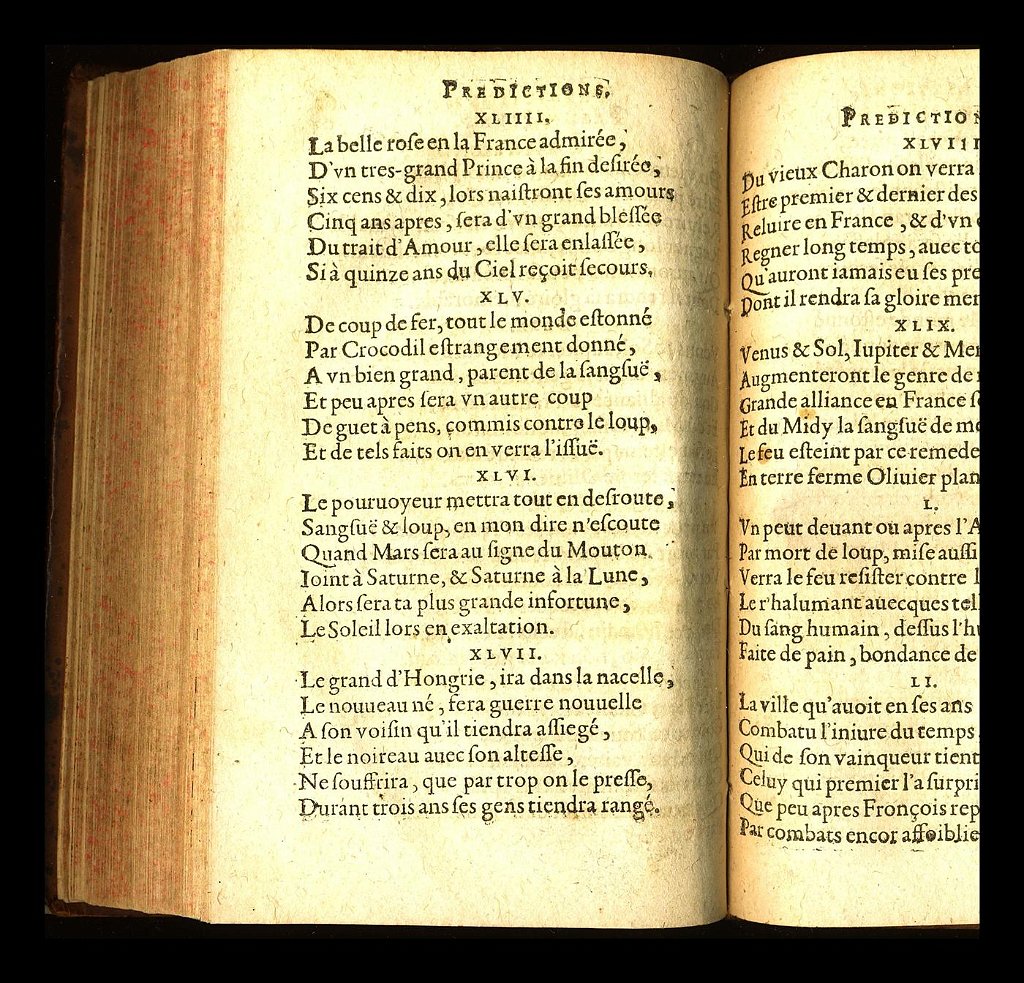 PREDICTIONS.
XLIIII.
La belle roſe en la France admirée,
D'vn tres-grand Prince à la fin deſirée,
Six cens & dix, lors naiſtront ſes amours
Cinq ans apres, ſera d'vn grand bleſſée
Du trait d'Amour, elle ſera enlaſſée,
Si à quinze ans du Ciel reçoit ſecours.
XLV.
De coup de fer, tout le monde eſtonné
Par Crocodil eſtrangement donné,
A vn bien grand, parent de la ſangſuë,
Et peu apres ſera vn autre coup
De guet à pens, commis contre le loup,
Et de tels faits on en verra l'iſſuë.
XLVI.
Le pouruoyeur mettra tout en deſroute,
Sangſuë & loup, en mon dire n'eſcoute
Quand Mars ſera au ſigne du Mouton
Ioint à Saturne, & Saturne à la Lune,
Alors ſera ta plus grande infortune,
Le Soleil lors en exaltation.
XLVII.
Le grand d'Hongrie, ira dans la nacelle,
Le nouueau né, fera guerre nouuelle
A ſon voiſin qu'il tiendra aſſiegé,
Et le noireau auec ſon alteſſe,
Ne ſouffrira, que par trop on le preſſe,
Durant trois ans ſes gens tiendra rangé.
PREDICTION
XLVIII
Du vieux Charon on verra
Eſtre premier & dernier des
Reluire en France, & d'vn
Regner long temps, auec
Qu'auront iamais eu ſes pre
Dont il rendra ſa gloire mer
XLIX.
Venus & Sol, Iupiter & Mer
Augmenteront le genre de
Grande alliance en France
Et du Midy la ſangſuë de
Le feu eſteint par ce remede
En terre ferme Oliuier plan
L.
Vn peut deuant ou apres l'A
Par mort de loup, miſe auſſi
Verra le feu reſiſter contre
Le r'halumant auecques tel
Du ſang humain, deſſus l'hu
Faite de pain, bondance de
LI.
La ville qu'auoit en ſes ans
Combatu l'iniure du temps
Qui de ſon vainqueur tient
Celuy qui premier l'a ſurpri
Que peu apres Fronçois rep
Par combats encor affoiblie